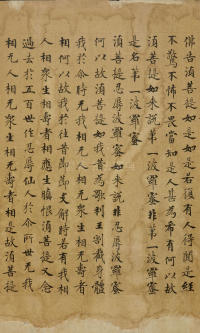 佛告須菩提如是如是若復有人得聞是經
不驚不怖不畏當知是人甚為希有何以故
須菩提如來說第一波羅蜜非第一波羅蜜
是名第一波羅蜜
須菩提忍辱波羅蜜如來說非忍辱波羅蜜
何以故須菩提如我昔為歌利王割截身體
我於尒時无我相无人相无眾生相无壽者
相何以故我於往昔節節支解時若有我相
人相眾生相壽者相應生瞋恨須菩提又念
過去於五百世作忍辱仙人於尒所世无我
相无人相无眾生相无壽者相是故須菩提